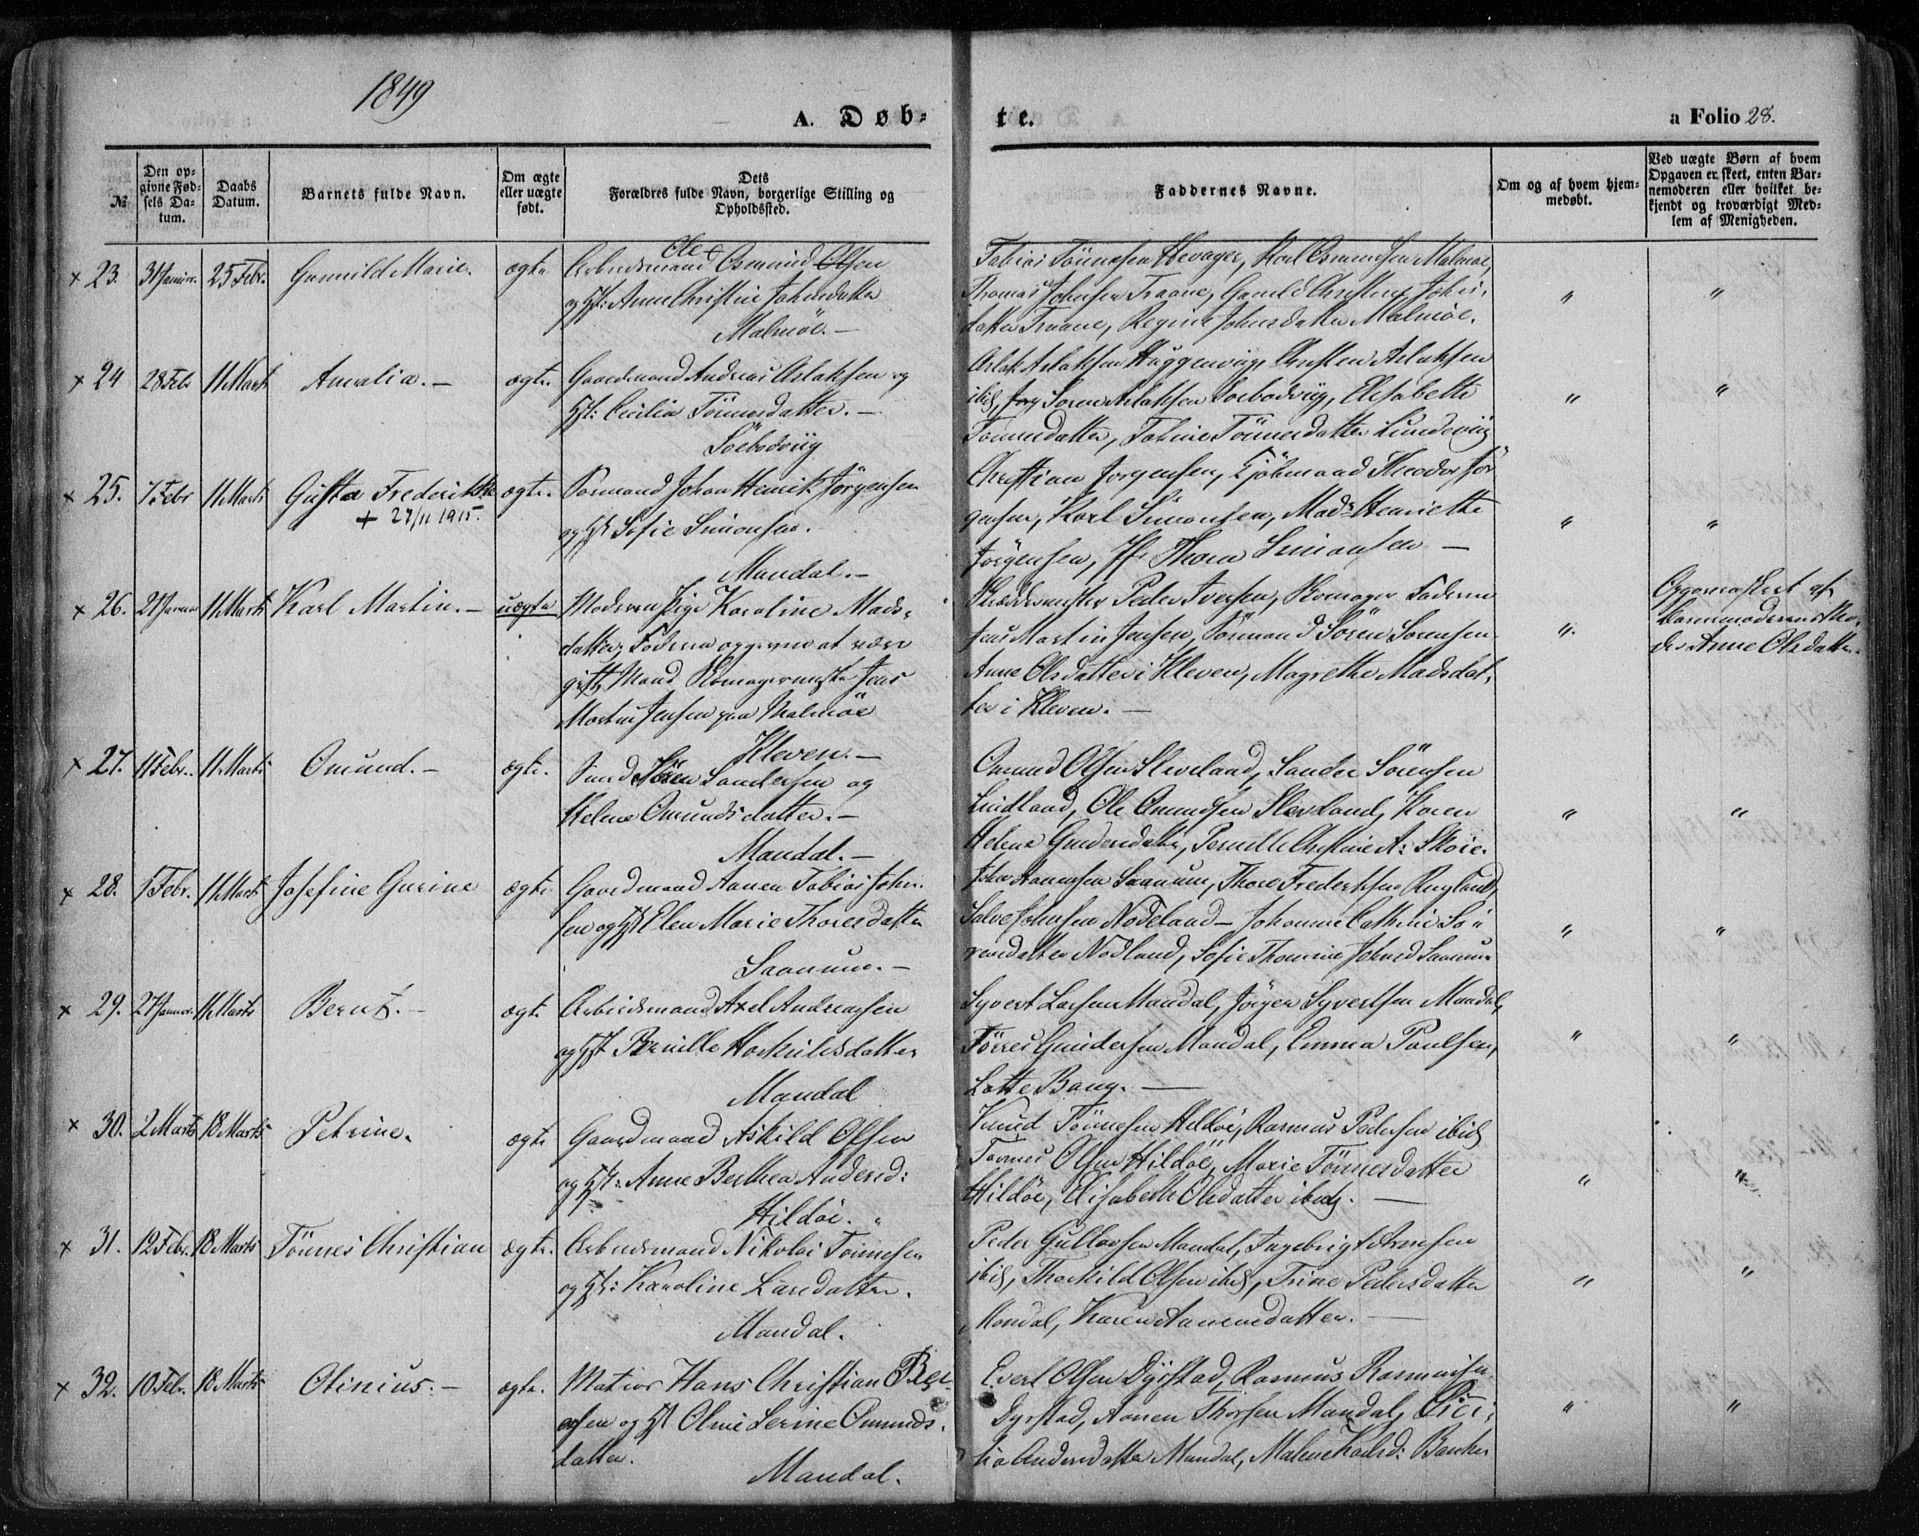 1849
A. Døb-
te.
a Folio 28.
№
Den op-
givne Fød-
sels Da-
tum.
Daabs
Datum.
Barnets fulde Navn.
Om ægte
eller uægte
født.
Dets
Forældres fulde Navn, borgerlige Stilling og
Opholdssted.
Faddernes Navne.
Om og af hvem hjem-
medøbt.
Ved uægte Børn af hvem
Opgaven er skeet, enten Bar-
nemoderen eller hvilket be-
kjendt og troværdigt Med-
lem af Menigheden.
× 23. 31 Januar. 25 Febr. Gunnild Marie. ægte Arbeidsmand Ole Osmund Olsen
og Hst: Anne Christine Johnsdatter
Malmöe. —
Tobias Tönnessen Karl Osmundsen Malmöe,
Thomas Johnsen Traane, Christine Johns-
datter Traane, Regine Johnsdatter Malmöe.
× 24 28 Febr 11 Marts Amalia. — ægte. Gaardmand Andreas Aslaksen og
Hst: Cecilia Tönnesdatter. —
Söebodviig
Aslak Aslaksen Christen Aslaksen
ibid, Sören Aslaksen Soebodviig, Elisabeth
Tönnesdatter, Tönnesdatter Lundeviig
× 25. 7 Febr 11 Marts Gusta Frederikke ægte. Sömand Johan Henrik Jörgensen
+ 27/11 1915.
og Hst Sofie Simonsen.
Mandal. —
Christian Jorgensen, Kjöbmand Theodor Jör-
gensen, Karl Simonsen, Mad: Henriette
Jörgensen, Jfr Thora Simonsen —
× 26. 21 Januar 11 Marts Karl Martin. — uægte Moderen Pige Karoline Mads-
datter, Faderen opgiven at være
gift Mand Skomagermester Jens
Martin Jensen paa Malmöe
Kleven. —
Skræddermester Peder Iversen, Skomager Faderen
Jens Martin Jensen, Sömand Sören Sörensen
Anne Olsdatter i Kleven, Magrethe Madsdat-
ter i Kleven. —
af
Barnemoderens Mo-
der Anne Olsdatter.
× 27. 11 Febr. 11 Marts Omund. — ægte. Sören Sandersen og
Helene Omundsdatter. —
Mandal. —
Omund Olsen Sleveland, Sander Sörensen
Lindland, Ole Omundsen Sleveland, Karen
Helene Pernille Christine A: Skoie.
× 28. 1 Febr. 11 Marts Josefine Gurine ægte. Gaardmand Aanen Tobias John-
sen og Hst Elen Marie Thoresdatter
Saanum. —
John Aanensen Saanum, Thore Fredriksen Rugland,
Salve Johnsen Nödeland — Johanne Cathrine Sö-
rensdatter Nödland, Sofie Thomine Johnsd Saanum
× 29. 27 Januar. 11 Marts Bernt. — ægte. Arbeidsmand Axel Andreasen
og Hst Pernille Hoskildsdatter
Mandal
Syvert Larsen Mandal, Jörgen Syvertsen Mandal,
Törres Gundersen Mandal, Emma Paulsen,
Lotte Bang. —
× 30. 2 Marts 18 Marts Petrine. ægte Gaardmand Askild Olsen
og Hst: Anne Berthea Andersd:
Hildöe.
Knud Tönnesen Hildöe, Rasmus Pedersen ibid,
Tönnes Olsen Hildöe, Marie Tönnesdatter
Hildöe, Elisabeth Olsdatter ibid. —
× 31. 12 Febr. 18 Marts Tönnes Christian ægte. Arbeidsmand Nikolai Tönnesen
og Hst: Karoline Larsdatter.
Mandal.
Peder Gullovsen Mandal, Ingebrigt Arnesen
ibid, Thorkild Olsen ibid, Trine Pedersdatter
Mandal, Karen Aanensdatter. —
× 32. 10 Febr. 18 Marts Otinius. — ægte. Matros Hans Christian
og Hst Oline Serine Omunds-
datter.
Mandal.
Evert Olsen Dyrstad, Rasmus Rasmussen
Dyrstad, Aanen Thorsen Mandal, Ceci-
lia Andersdatter Mandal, Malene Karlsd: